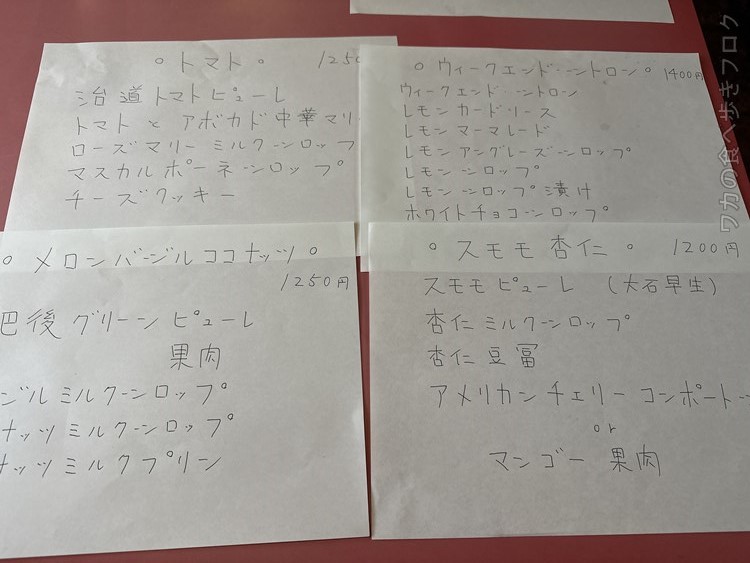 。トマト。 1250
治道トマトピューレ
トマトとアボカド中華マリ
ローズマリーミルクシロップ
マスカルポーネシロップ
チーズクッキー
。ウィークエンドシトロン。 1400円
ウィークエンドシトロン
レモンカードソース
レモンマーマレード
レモンアングレーズシロップ
レモンシロップ
レモンシロップ漬け
ホワイトチョコシロップ
。メロンバジルココナッツ。
1250円
肥後グリーンピューレ
果肉
ジルミルクシロップ
ナッツミルクシロップ
ナッツミルクプリン
。スモモ杏仁。 1200円
スモモピューレ (大石早生)
杏仁ミルクシロップ
杏仁豆冨
アメリカンチェリーコンポート
or
マンゴー果肉
ワカの食べ歩きブログ